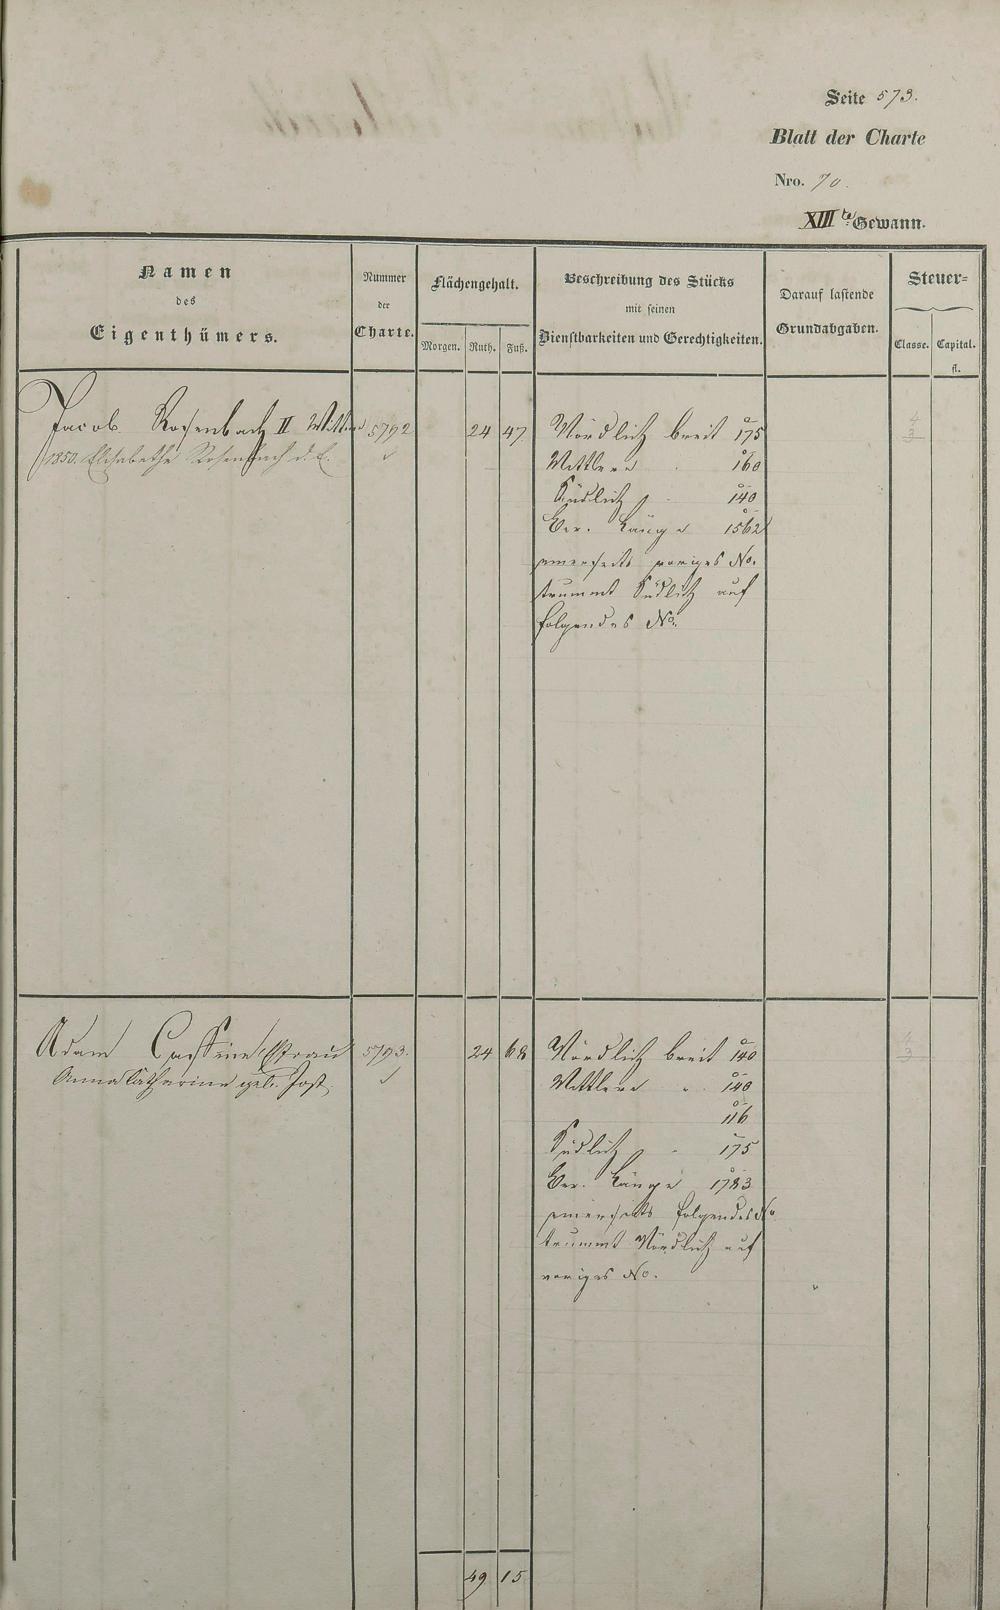 Seite 573.
Blatt der Charte
Nro. 70.
XIII te Gewann.
Namen
des
Eigenthümers.
Nummer
der
Charte.
Flächengehalt.
Morgen. Ruth. Fuß.
Beschreibung des Stücks
mit seinen
Dienstbarkeiten und Gerechtigkeiten.
Darauf lastende
Grundabgaben.
Steuer=
Classe. Capital.
fl.
Jacob Rosenbach II Wittwe 5792 24 47 Nördlich breit 175
1850. Elisabethe Rosenbach d. E. Mittlere 160
Südlich " 140
Ver. Länge 1562
einerseits voriges No.
strummt Südlich auf
folgendes No.
4
3
Adam Frau 5793. 24 68 Nördlich breit 140
Anna Catharine geb. Jost. Mittlere " 140
116
Südlich " 175
Ver. Länge 1783
einerseits folgendes No
trummt Nördlich auf
voriges No.
4
3
49 15